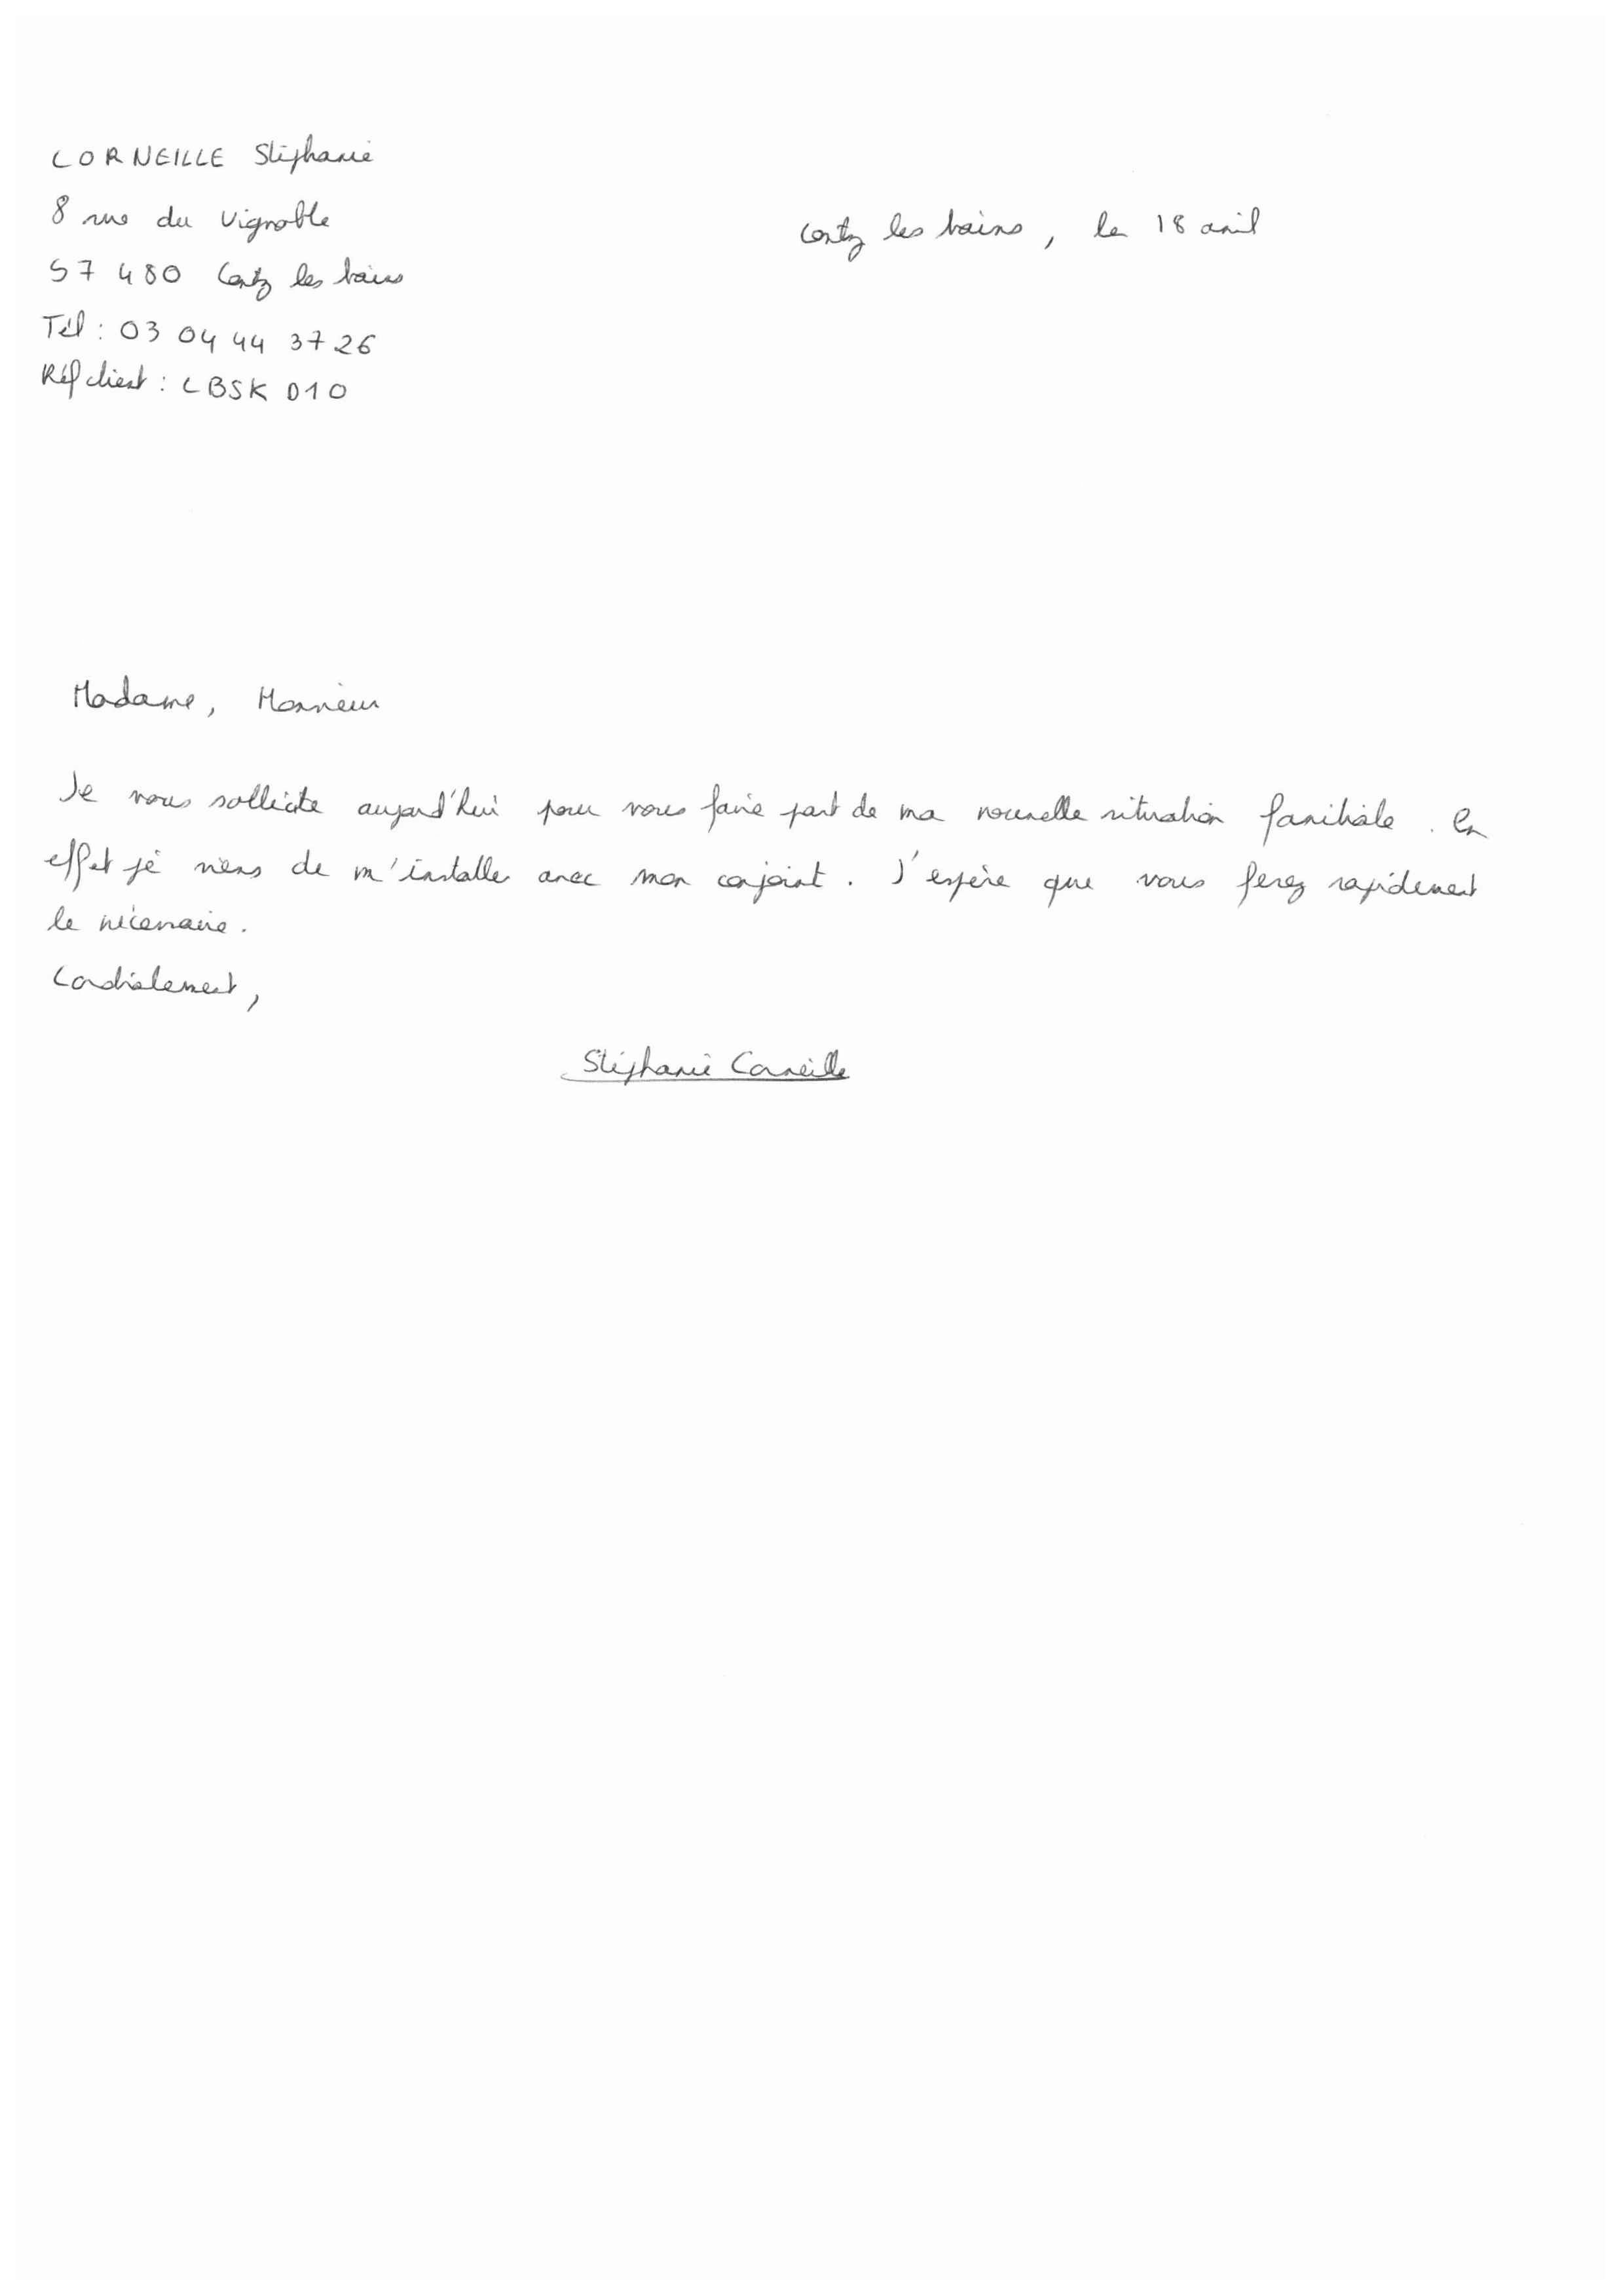 CORNEILLE Stéphanie
8 rue du Vignoble
Contz les bains, le 18 avril
57 480 Contz les bains
Tél : 03 04 44 37 26
Réf client : CBSK 010
Madame, Monsieur
Je vous sollicite aujourd'hui pour vous faire part de ma nouvelle situation familiale. En
effet je viens de m'installer avec mon conjoint. J'espère que vous ferez rapidement
le nécessaire.
Cordialement,
Stéphanie Corneille